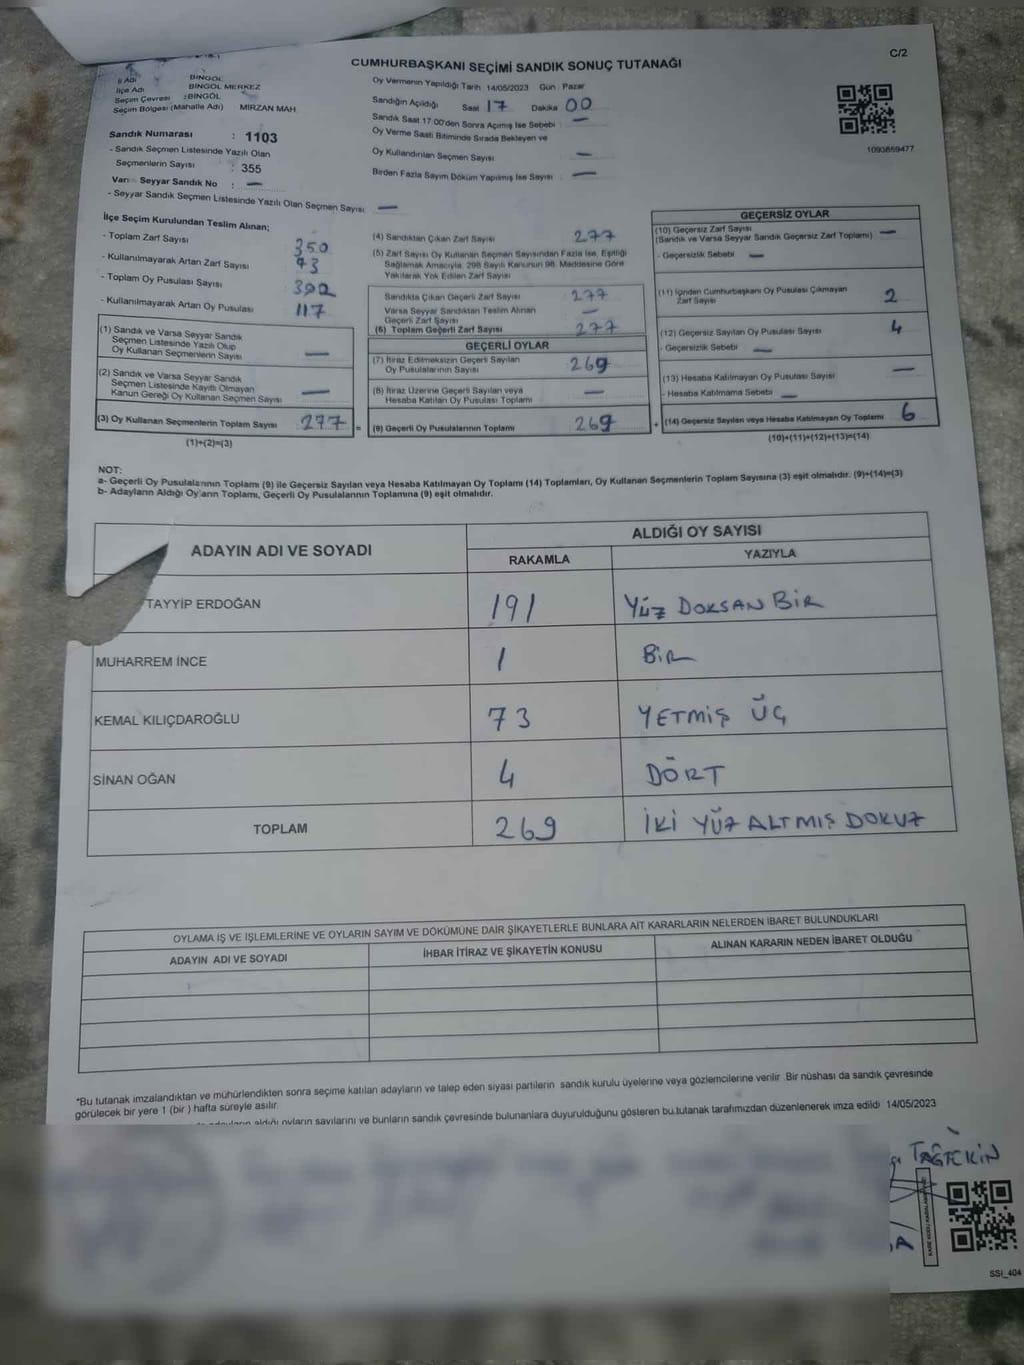 C/2
CUMHURBAŞKANI SEÇİMİ SANDIK SONUÇ TUTANAĞI
İl Adı BİNGÖL
İlçe Adı BİNGÖL MERKEZ
Seçim Çevresi :BİNGÖL
Seçim Bölgesi (Mahalle Adı) MİRZAN MAH.
Sandık Numarası : 1103
- Sandık Seçmen Listesinde Yazılı Olan
Seçmenlerin Sayısı : 355
Varsa Seyyar Sandık No : —
- Seyyar Sandık Seçmen Listesinde Yazılı Olan Seçmen Sayısı —
Oy Vermenin Yapıldığı Tarih 14/05/2023 Gün : Pazar
Sandığın Açıldığı Saat 17 Dakika 00
Sandık Saat 17:00'den Sonra Açımış İse Sebebi : —
Oy Verme Saati Bitiminde Sırada Bekleyen ve
Oy Kullandırılan Seçmen Sayısı —
Birden Fazla Sayım Döküm Yapılmış İse Sayısı —
1093859477
İlçe Seçim Kurulundan Teslim Alınan;
- Toplam Zarf Sayısı 350
- Kullanılmayarak Artan Zarf Sayısı 73
- Toplam Oy Pusulası Sayısı
- Kullanılmayarak Artan Oy Pusulası 117
(1) Sandık ve Varsa Seyyar Sandık
Seçmen Listesinde Yazılı Olup
Oy Kullanan Seçmenlerin Sayısı —
(2) Sandık ve Varsa Seyyar Sandık
Seçmen Listesinde Kayıtlı Olmayan
Kanun Gereği Oy Kullanan Seçmen Sayısı —
(3) Oy Kullanan Seçmenlerin Toplam Sayısı : 277 =
(1)+(2)=(3)
(4) Sandıktan Çıkan Zarf Sayısı 277
(5) Zarf Sayısı Oy Kullanan Seçmen Sayısından Fazla İse, Eşitliği
Sağlamak Amacıyla, 298 Sayılı Kanunun 98. Maddesine Göre
Yakılarak Yok Edilen Zarf Sayısı
Sandıkta Çıkan Geçerli Zarf Sayısı 277
Varsa Seyyar Sandıktan Teslim Alınan
Geçerli Zarf Sayısı —
(6) Toplam Geçerli Zarf Sayısı 277
GEÇERLİ OYLAR
(7) İtiraz Edilmeksizin Geçerli Sayılan
Oy Pusulalarının Sayısı 269
(8) İtiraz Üzerine Geçerli Sayılan veya
Hesaba Katılan Oy Pusulası Toplamı —
(9) Geçerli Oy Pusulalarının Toplamı 269 +
GEÇERSİZ OYLAR
(10) Geçersiz Zarf Sayısı
(Sandık ve Varsa Seyyar Sandık Geçersiz Zarf Toplamı) —
- Geçersizlik Sebebi —
(11) İçinden Cumhurbaşkanı Oy Pusulası Çıkmayan
Zarf Sayısı 2
(12) Geçersiz Sayılan Oy Pusulası Sayısı 4
- Geçersizlik Sebebi —
(13) Hesaba Katılmayan Oy Pusulası Sayısı —
- Hesaba Katılmama Sebebi —
(14) Geçersiz Sayılan veya Hesaba Katılmayan Oy Toplamı 6
(10)+(11)+(12)+(13)=(14)
NOT:
a- Geçerli Oy Pusulalarının Toplamı (9) ile Geçersiz Sayılan veya Hesaba Katılmayan Oy Toplamı (14) Toplamları, Oy Kullanan Seçmenlerin Toplam Sayısına (3) eşit olmalıdır. (9)+(14)=(3)
b- Adayların Aldığı Oyların Toplamı, Geçerli Oy Pusulalarının Toplamına (9) eşit olmalıdır.
ADAYIN ADI VE SOYADI ALDIĞI OY SAYISI
RAKAMLA YAZIYLA
TAYYİP ERDOĞAN 191 YÜZ DOKSAN BİR
MUHARREM İNCE 1 BİR
KEMAL KILIÇDAROĞLU 73 YETMİŞ ÜÇ
SİNAN OĞAN 4 DÖRT
TOPLAM 269 İKİ YÜZ ALTMIŞ DOKUZ
OYLAMA İŞ VE İŞLEMLERİNE VE OYLARIN SAYIM VE DÖKÜMÜNE DAİR ŞİKAYETLERLE BUNLARA AİT KARARLARIN NELERDEN İBARET BULUNDUKLARI
ADAYIN ADI VE SOYADI İHBAR İTİRAZ VE ŞİKAYETİN KONUSU ALINAN KARARIN NEDEN İBARET OLDUĞU
*Bu tutanak imzalandıktan ve mühürlendikten sonra seçime katılan adayların ve talep eden siyasi partilerin sandık kurulu üyelerine veya gözlemcilerine verilir. Bir nüshası da sandık çevresinde
görülecek bir yere 1 (bir ) hafta süreyle asılır.
aldığı oyların sayılarını ve bunların sandık çevresinde bulunanlara duyurulduğunu gösteren bu tutanak tarafımızdan düzenlenerek imza edildi 14/05/2023
TAĞTEKİN
SSI_404